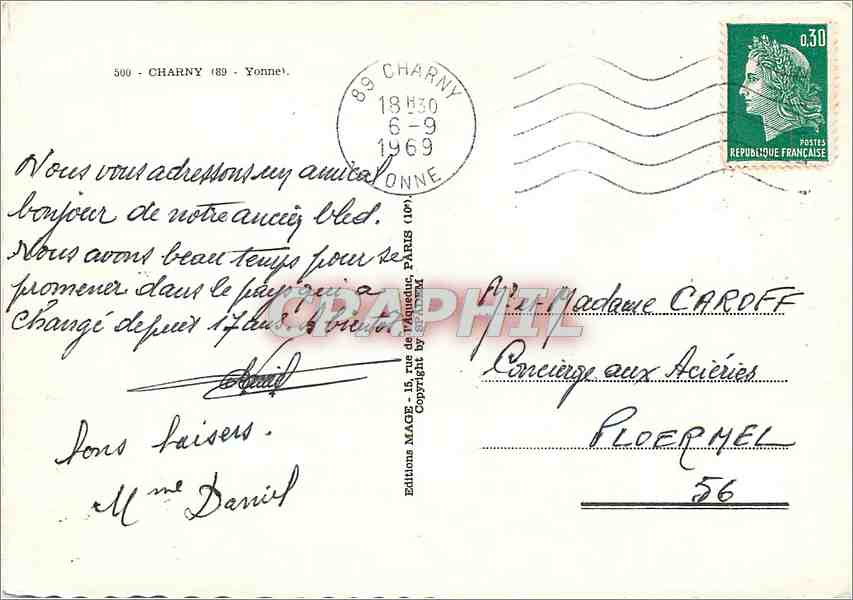 500 - CHARNY (89 - Yonne).
89 CHARNY
18 H30
6 - 9
1969
YONNE
0,30
POSTES
REPUBLIQUE FRANÇAISE
Nous vous adressons un amical
bonjour de notre ancien bled.
Nous avons beau temps pour se
promener dans le pays qui a
changé depuis 17 ans. A bientôt.
Daniel
bons baisers.
Mme Daniel
Editions MAGE - 15, rue de l'Aqueduc, PARIS (10e).
Copyright by SPADEM
CPAPHIL
Mr et Madame CAROFF
Concierge aux Aciéries
PLOERMEL
56